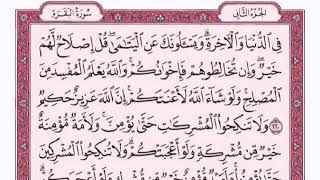 الجزء الثاني
سورة البقرة
فِي الدُّنْيَا وَالْآخِرَةِ ۗ وَيَسْأَلُونَكَ عَنِ الْيَتَامَىٰ ۖ قُلْ إِصْلَاحٌ لَّهُمْ
خَيْرٌ ۖ وَإِن تُخَالِطُوهُمْ فَإِخْوَانُكُمْ ۚ وَاللَّهُ يَعْلَمُ الْمُفْسِدَ مِنَ
الْمُصْلِحِ ۚ وَلَوْ شَاءَ اللَّهُ لَأَعْنَتَكُمْ ۚ إِنَّ اللَّهَ عَزِيزٌ حَكِيمٌ
٢٢٠ وَلَا تَنكِحُوا الْمُشْرِكَاتِ حَتَّىٰ يُؤْمِنَّ ۚ وَلَأَمَةٌ مُّؤْمِنَةٌ
خَيْرٌ مِّن مُّشْرِكَةٍ وَلَوْ أَعْجَبَتْكُمْ ۗ وَلَا تُنكِحُوا الْمُشْرِكِينَ
حَتَّىٰ يُؤْمِنُوا ۚ وَلَعَبْدٌ مُّؤْمِنٌ خَيْرٌ مِّن مُّشْرِكٍ وَلَوْ أَعْجَبَكُمْ